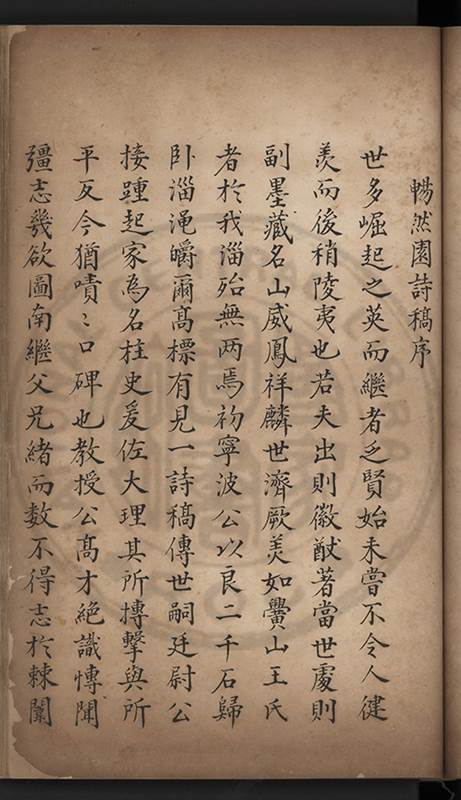 暢然園詩稿序
世多崛起之英而繼者乏賢始未嘗不令人健
羨而後稍陵夷也若夫出則徽猷著當世處則
副墨藏名山威鳳祥麟世濟厥美如爨山王氏
者於我淄殆無两焉初寧波公以良二千石歸
卧淄澠皭爾髙標有見一詩稿傳世嗣廷尉公
接踵起家為名柱史爰佐大理其所搏擊與所
平反今猶嘖〻口碑也教授公髙才絶識愽聞
彊志幾欲圖南繼父兄緒而数不得志於棘闈